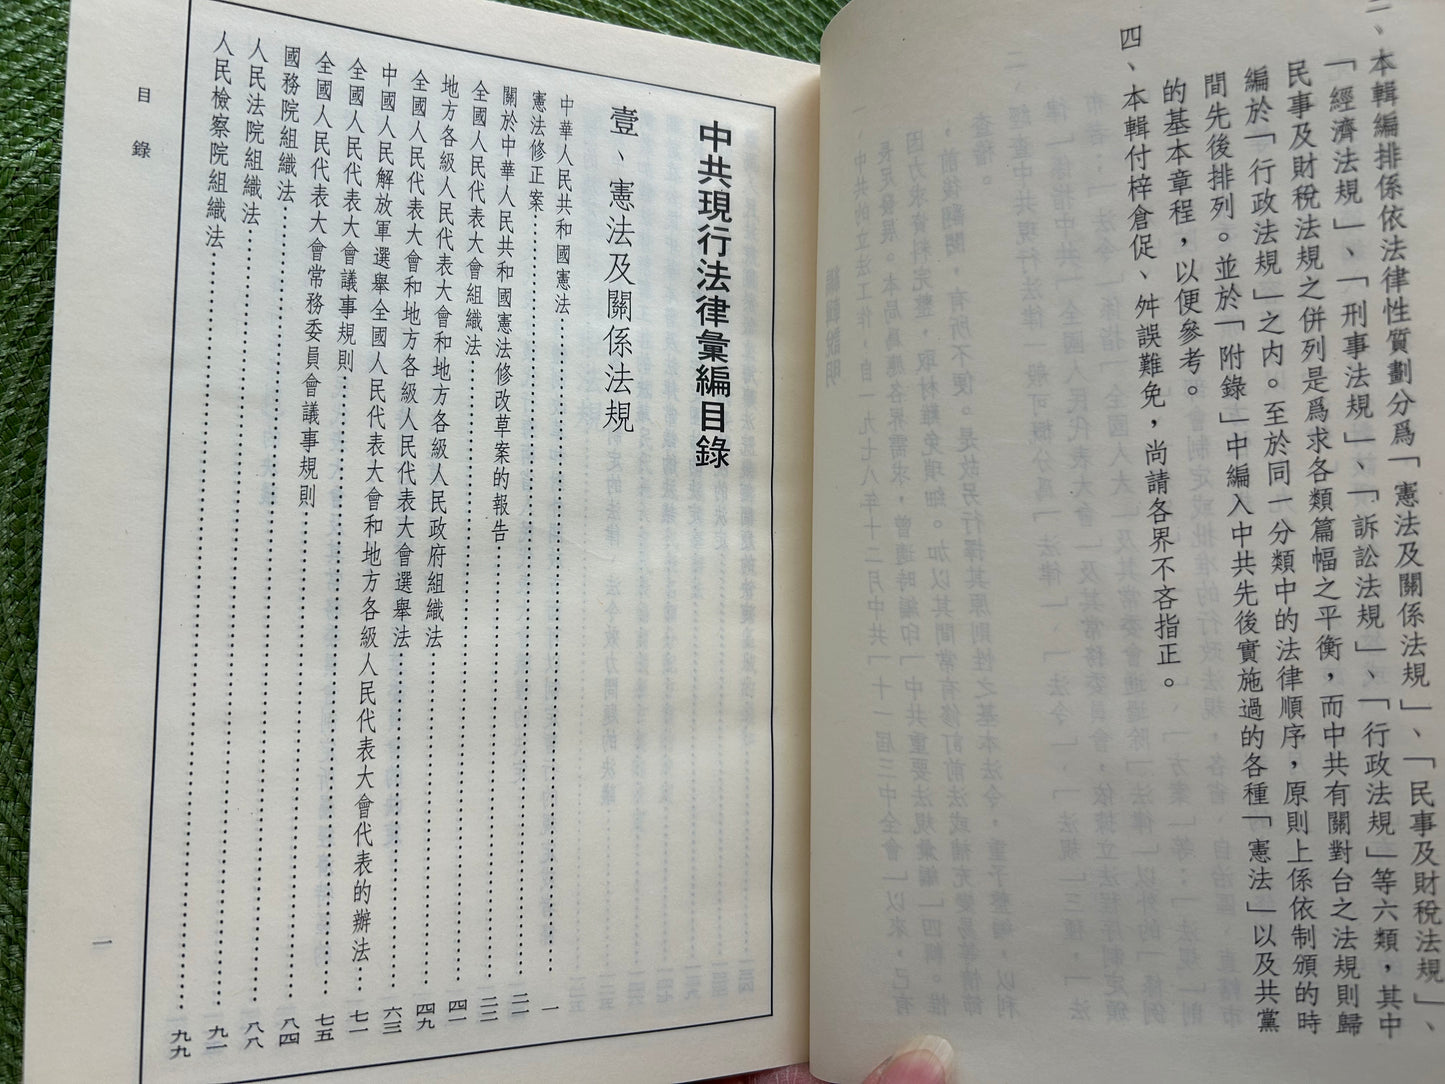 三、本輯編排係依法律性質劃分爲「憲法及關係法規」、「民事及財稅法規」、
「經濟法規」、「刑事法規」、「訴訟法規」、「行政法規」等六類，其中
民事及財稅法規之併列是爲求各類篇幅之平衡，而中共有關對台之法規則歸
編於「行政法規」之內。至於同一分類中的法律順序，原則上係依制頒的時
間先後排列。並於「附錄」中編入中共先後實施過的各種「憲法」以及共黨
的基本章程，以便參考。
四、本輯付梓倉促、舛誤難免，尚請各界不吝指正。
中共現行法律彙編目錄
壹、憲法及關係法規
中華人民共和國憲法……………………一
憲法修正案……………………二一
關於中華人民共和國憲法修改草案的報告……………………二二
全國人民代表大會組織法……………………四一
地方各級人民代表大會和地方各級人民政府組織法……………………四九
全國人民代表大會和地方各級人民代表大會選舉法……………………六三
中國人民解放軍選舉全國人民代表大會和地方各級人民代表大會代表的辦法……七一
全國人民代表大會議事規則……………………七五
全國人民代表大會常務委員會議事規則……………………八四
國務院組織法……………………八八
人民法院組織法……………………九一
人民檢察院組織法……………………九九
目錄
一